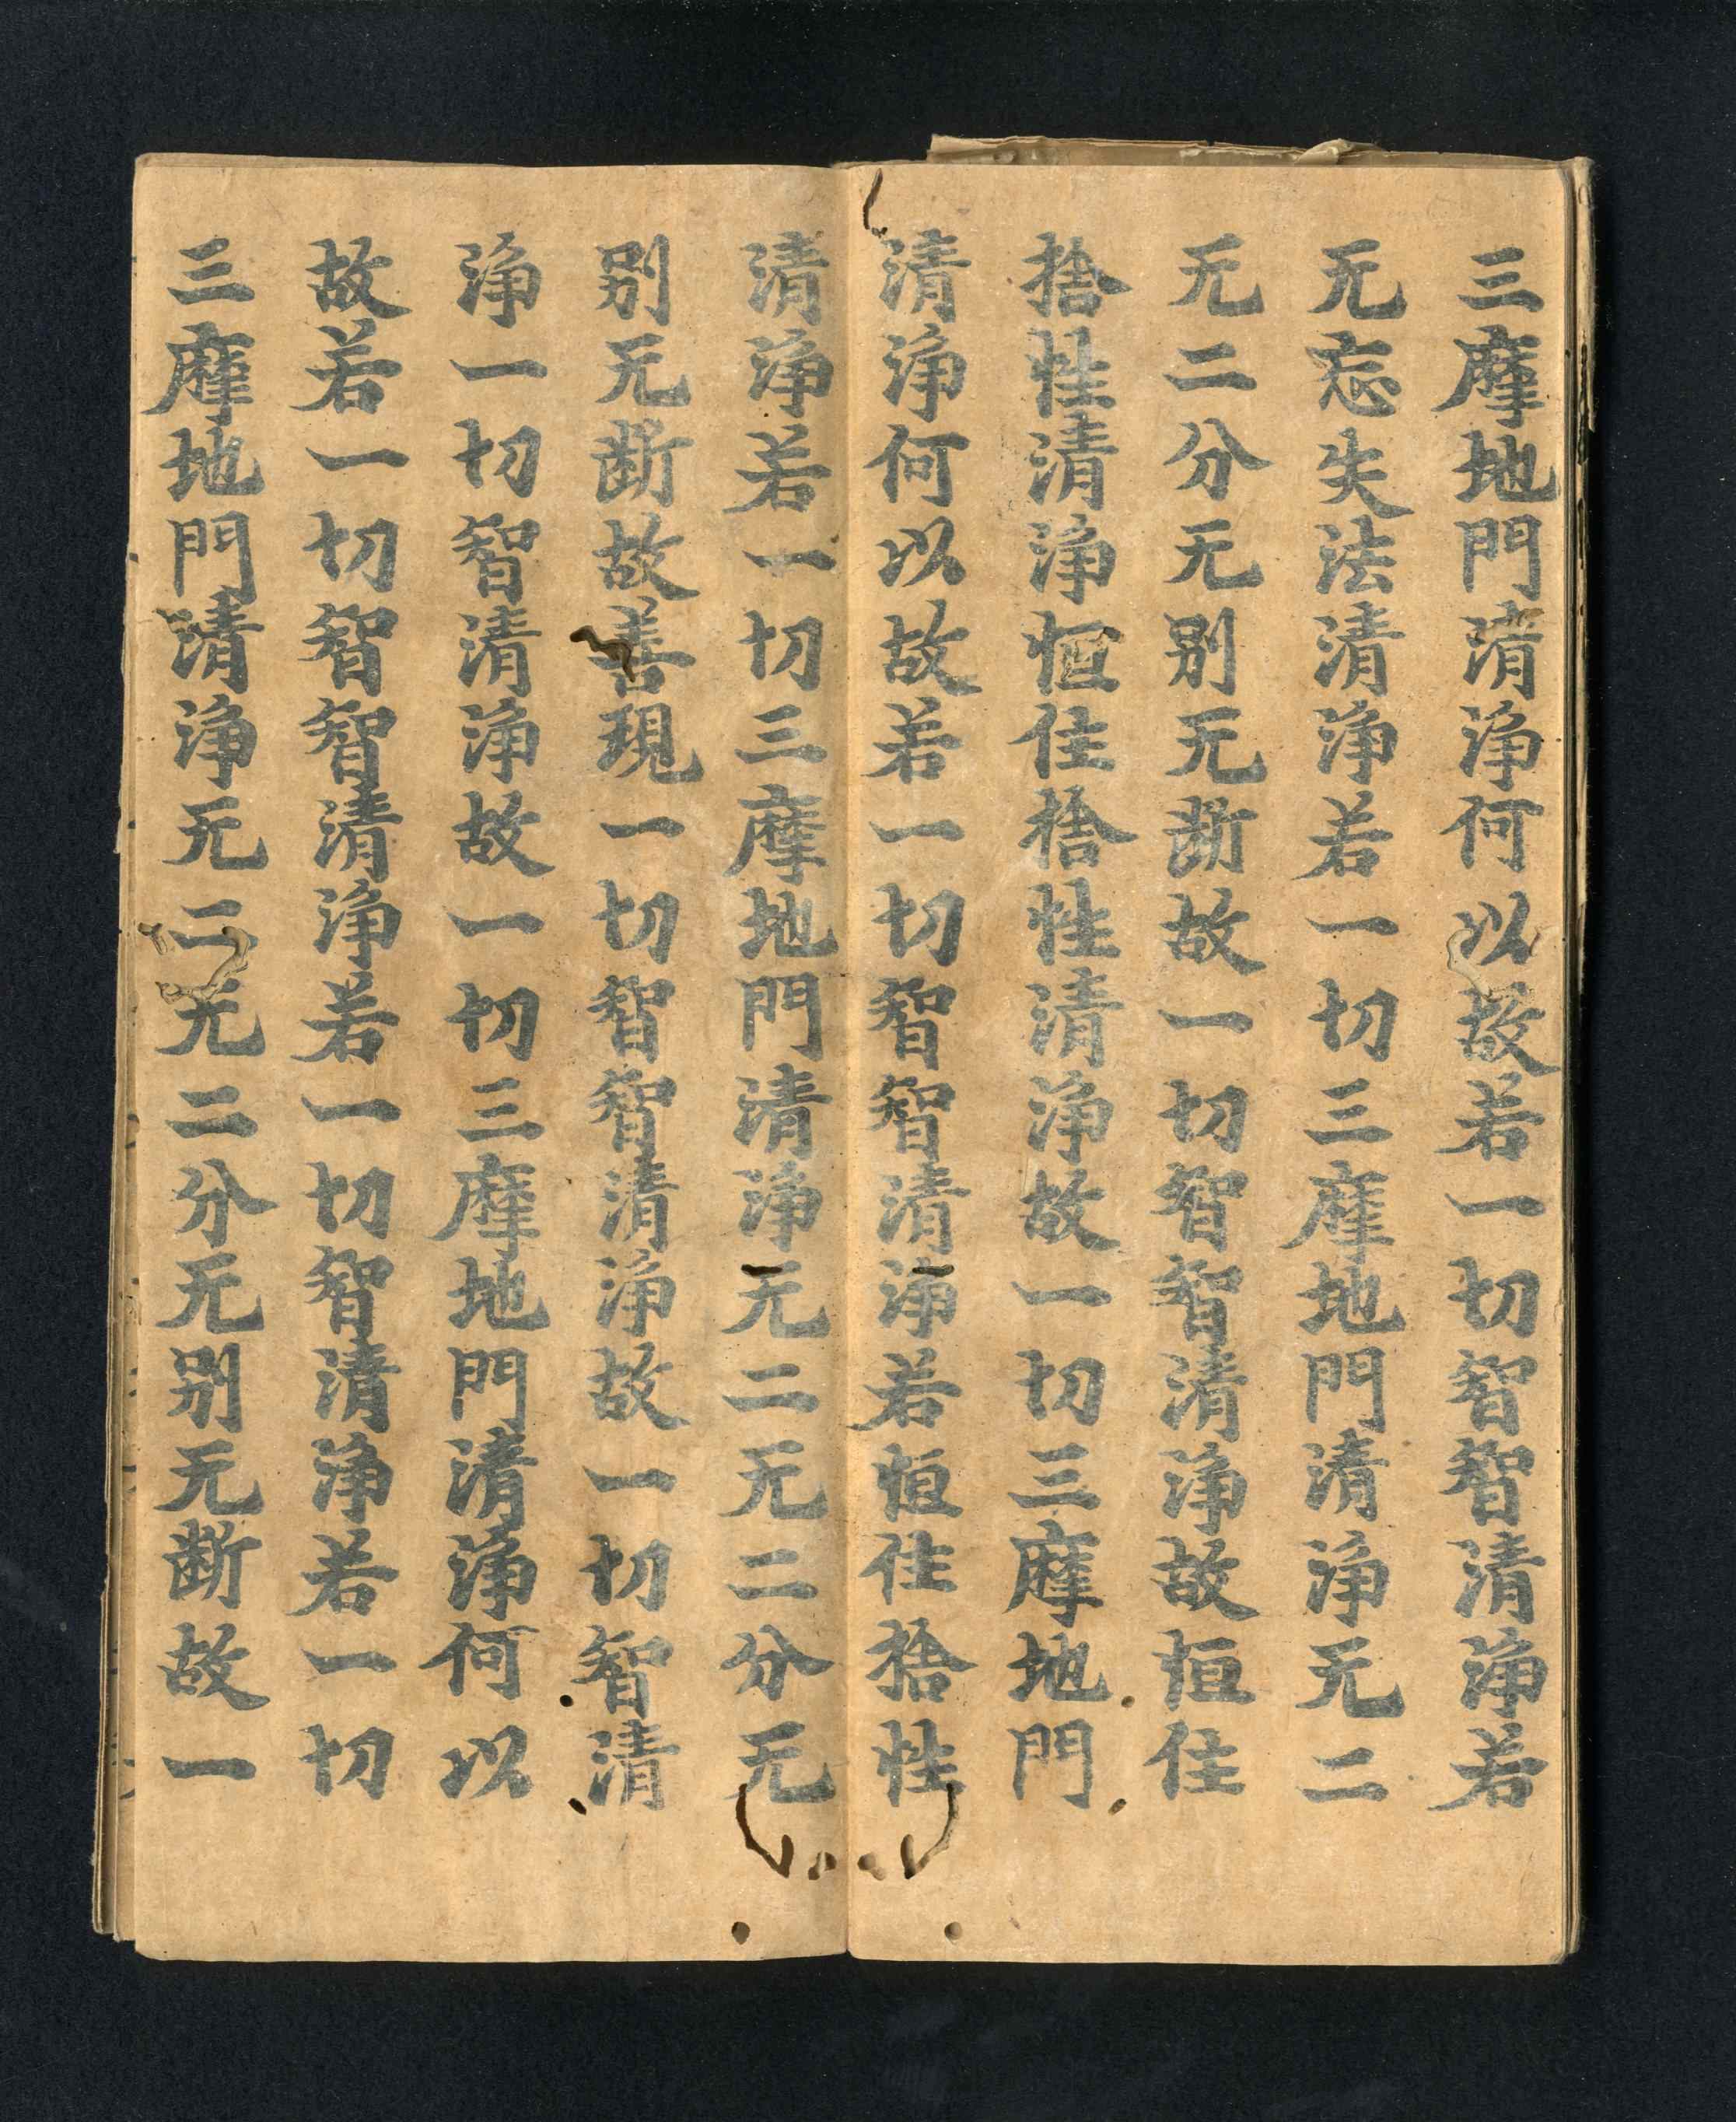 三摩地門清淨何以故若一切智智清淨若
无忘失法清淨若一切三摩地門清淨无二
无二分无别无断故一切智智清淨故恒住
捨性清淨恒住捨性清淨故一切三摩地門
清淨何以故若一切智智清淨若恒住捨性
清淨若一切三摩地門清淨无二无二分无
别无断故善現一切智智清淨故一切智清
淨一切智清淨故一切三摩地門清淨何以
故若一切智智清淨若一切智清淨若一切
三摩地門清淨无二无二分无别无断故一